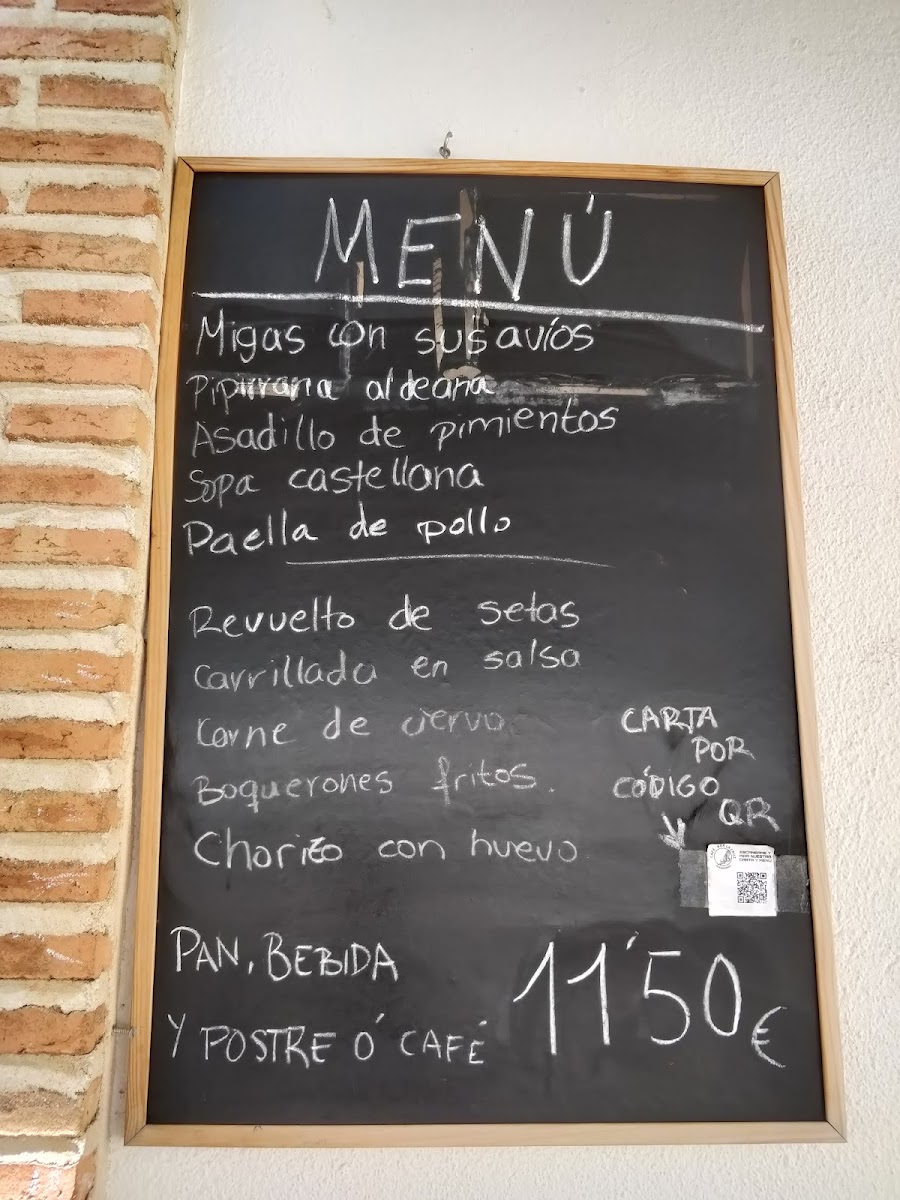 MENÚ
Migas con sus avíos
Pipirrana aldeana
Asadillo de pimientos
Sopa castellana
Paella de pollo
Revuelto de setas
Carrillada en salsa
Carne de ciervo
Boquerones fritos.
Chorizo con huevo
CARTA
POR
CÓDIGO
QR
ESCANEAME Y
VER NUESTRA
CARTA Y MENÚ
PAN, BEBIDA
Y POSTRE Ó CAFÉ
11'50€